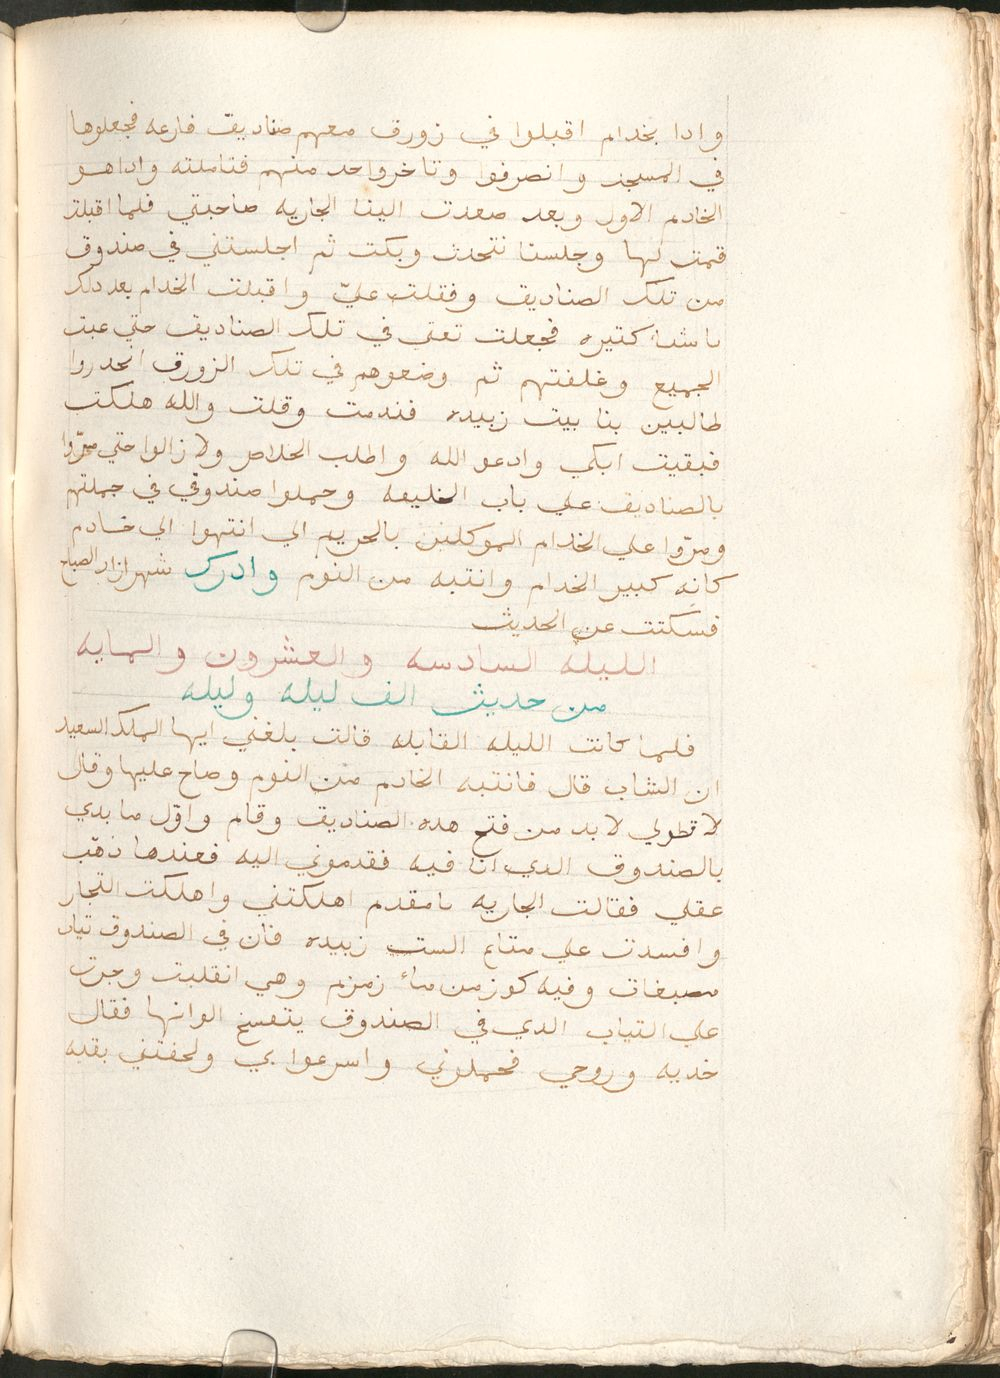 وادا بخدام اقبلوا في زورق معهم صناديق فارعه فجعلوها
في المسجد وانصرفوا وتاخر واحد منهم فتاملته واداهو
الخادم الاول وبعد صعدت الينا الجاريه صاحبتي فلما اقبلت
قمت لها وجلسنا نتحدث وبكت ثم اجلستني في صندوق
من تلك الصناديق وقفلت عليّ واقبلت الخدام بعد دلك
باشيا كتيره فجعلت تعبي في تلك الصناديق حتي عبت
الجميع وغلفتهم ثم وضعوهم في تلك الزورق انحدروا
طالبين بنا بيت زبيده فندمت وقلت والله هلكت
فبقيت ابكي وادعو الله واطلب الخلاص ولا زالوا حتي مرّوا
بالصناديق علي باب الخليفه وحملوا صندوقي في جملتهم
ومرّوا علي الخدام الموكلين بالحريم الي انتهوا الي خادم
كانه كبير الخدام وانتبه من النوم وادرك شهرازاد الصباح
فسكتت عن الحديث
الليله السادسه والعشرون والمايه
من حديث الف ليله وليله
فلما كانت الليله القابله قالت بلغني ايها الملك السعيد
ان الشاب قال فانتبه الخادم من النوم وصاح عليها وقال
لا تطولي لا بد من فتح هده الصناديق وقام واوّل ما بدي
بالصندوق الدي انا فيه فقدموني اليه فعندها ذهب
عقلي فقالت الجاريه يامقدم اهلكتني واهلكت التجار
وافسدت علي متاع الست زبيده فان في الصندوق تياب
مصبغات وفيه كوز من مائ زمزم وهي انقلبت وجرت
علي التياب الدي في الصندوق يتفسخ الوانها فقال
خديه وروحي فحملوني واسرعوا بي ولحقتني بقيه